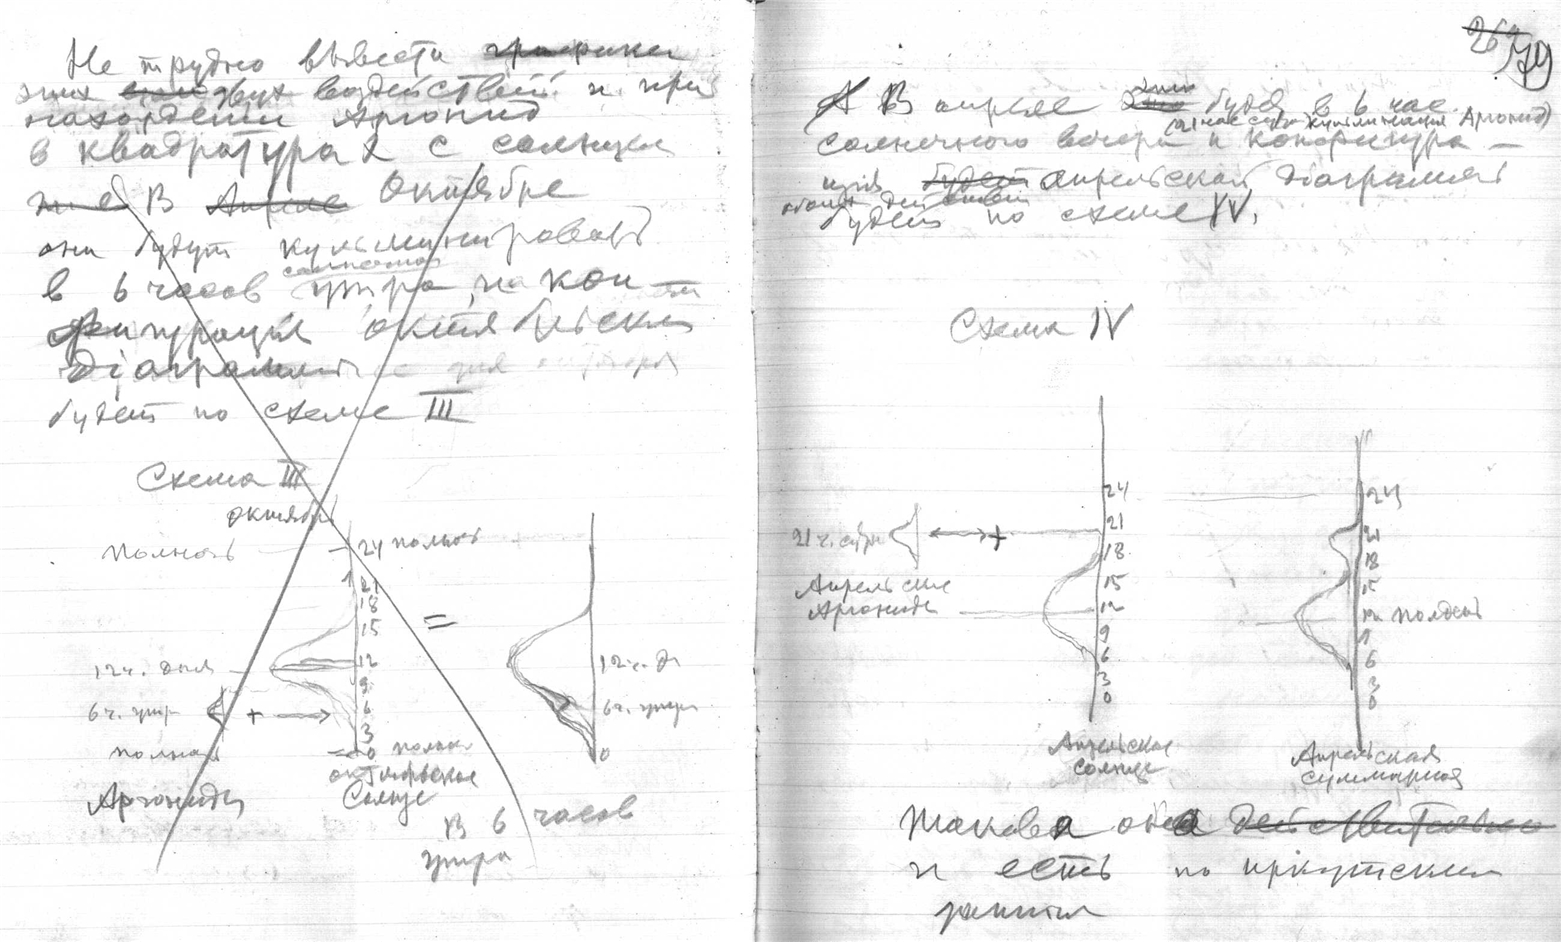 Не трудно вывести графики
этих двух воздействий и при
нахождении Аргонид
в квадратурах с солнцем
В Апреле Октябре
они будут кульминировать
солнечного
в 6 часов утра, и кон—
фигурация октябрьская
діаграммы
будет по схеме III
Схема III
октябрь
полночь
24 полноч
21
18
15
12 ч. дня
12
9
6 ч. утра
+
6
3
полноч
0 полноч
Аргониды
октябрьское
Солнце
=
12 ч. д
6 ч. утра
0
В 6 часов
утра
26
79
А В апреле это будет в 6 час.
(21 час кульминация Аргонид)
солнечного вечера и конфигура—
ція будет апрельской діаграммы
будет по схеме IV.
Схема IV
24
21
18
15
12
9
6
3
0
21 ч.
+
Апрельские
Аргониды
Апрельское
солнце
24
21
18
15
12 полдень
9
6
3
0
Апрельская
суммарная
Такова она действительно
и есть по иркутским